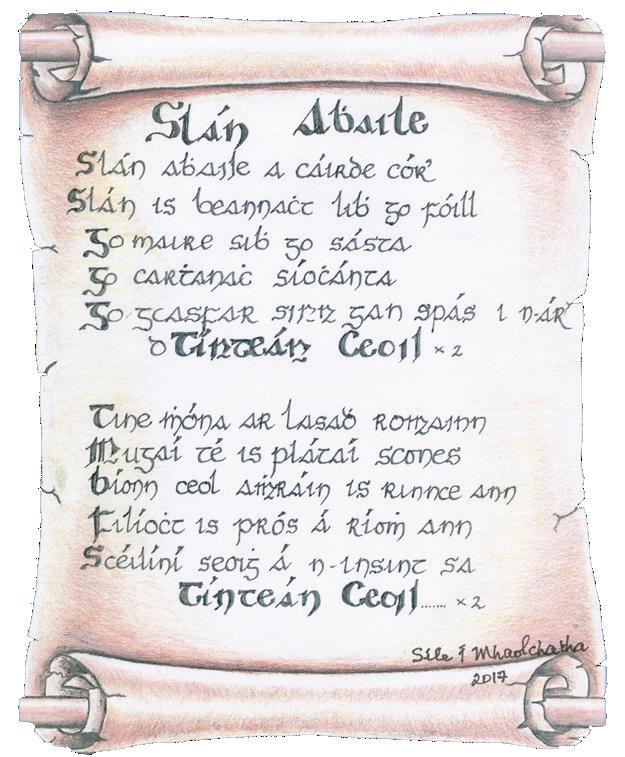 Slán Aḃaile
Slán aḃaile a cáirde cór'
Slán is beannaċt liḃ go fóill
Go maire siḃ go sásta
Go carṫanaċ síoċánta
Go gcasfar sinn gan spás i n-ár'
dTínteán Ċeoil × 2
Tine ṁóna ar lasaḋ roṁainn
Mugaí té is plátaí scones
Bíonn ceol aṁráin is rinnce ann
Filíoċt is prós á ríoṁ ann
Scéilíní seoiġ á n-insint sa
Tínteán Ceoil....... × 2
Síle Í Mhaolchatha
2017